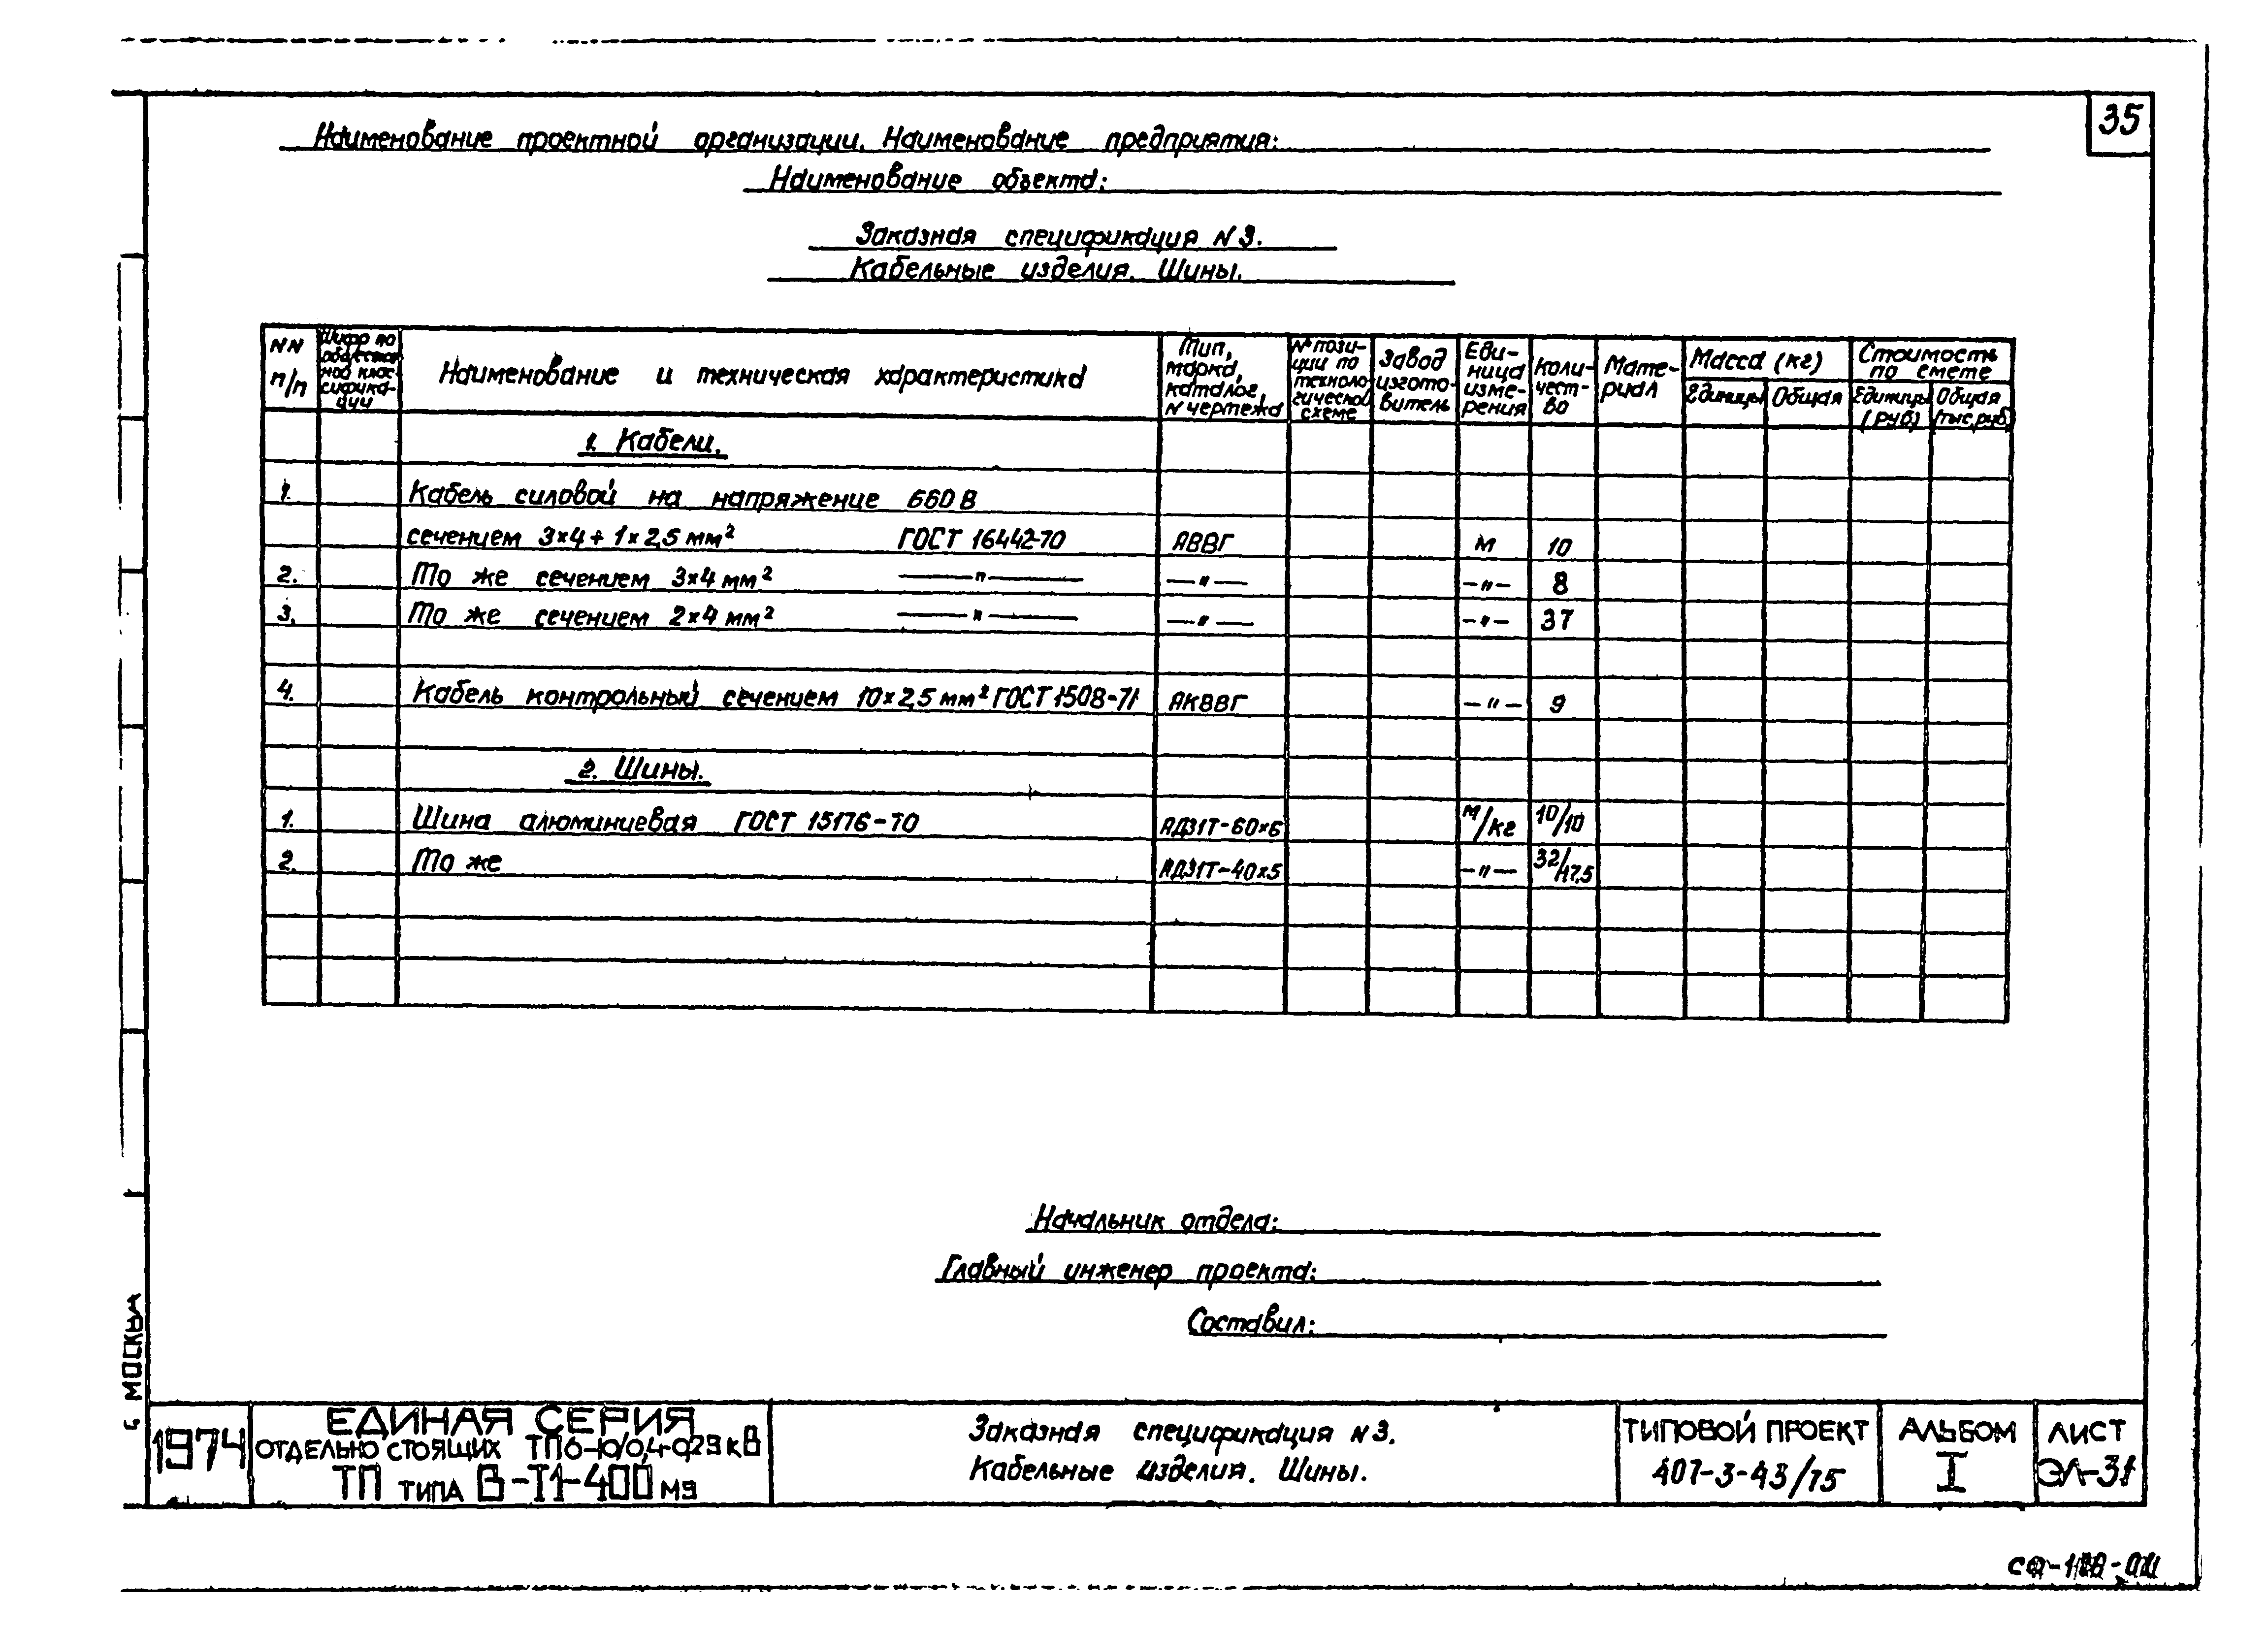 35
Наименование проектной организации. Наименование предприятия:
Наименование объекта:
Заказная спецификация N 3.
Кабельные изделия. Шины.
NN п/п
Шифр по
Наименование и техническая характеристика
Тип, марка, каталог, N чертежа
№ пози-ции по техноло-гической схеме
Завод изгото-витель
Еди-ница изме-рения
Коли-чест-во
Мате-риал
Масса (кг)
Единицы Общая
Стоимость по смете
Единицы (руб) Общая (тыс.руб)
1. Кабели.
1. Кабель силовой на напряжение 660 В
сечением 3×4 + 1×2,5 мм² ГОСТ 16442-70 АВВГ м 10
2. То же сечением 3×4 мм² —"— —"— —"— 8
3. То же сечением 2×4 мм² —"— —"— —"— 37
4. Кабель контрольный сечением 10×2,5 мм² ГОСТ 1508-71 АКВВГ —"— 9
2. Шины.
1. Шина алюминиевая ГОСТ 15176-70 АД31Т-60×6 м/кг 10/10
2. То же АД31Т-40×5 —"— 32/17,5
Начальник отдела:
Главный инженер проекта:
Составил:
г. МОСКВА
1974
ЕДИНАЯ СЕРИЯ
ОТДЕЛЬНО СТОЯЩИХ ТП 6-10/0,4-0,23 кВ
ТП ТИПА В-I1-400 м3
Заказная спецификация N 3.
Кабельные изделия. Шины.
ТИПОВОЙ ПРОЕКТ
407-3-43/75
АЛЬБОМ
I
ЛИСТ
ЭЛ-31